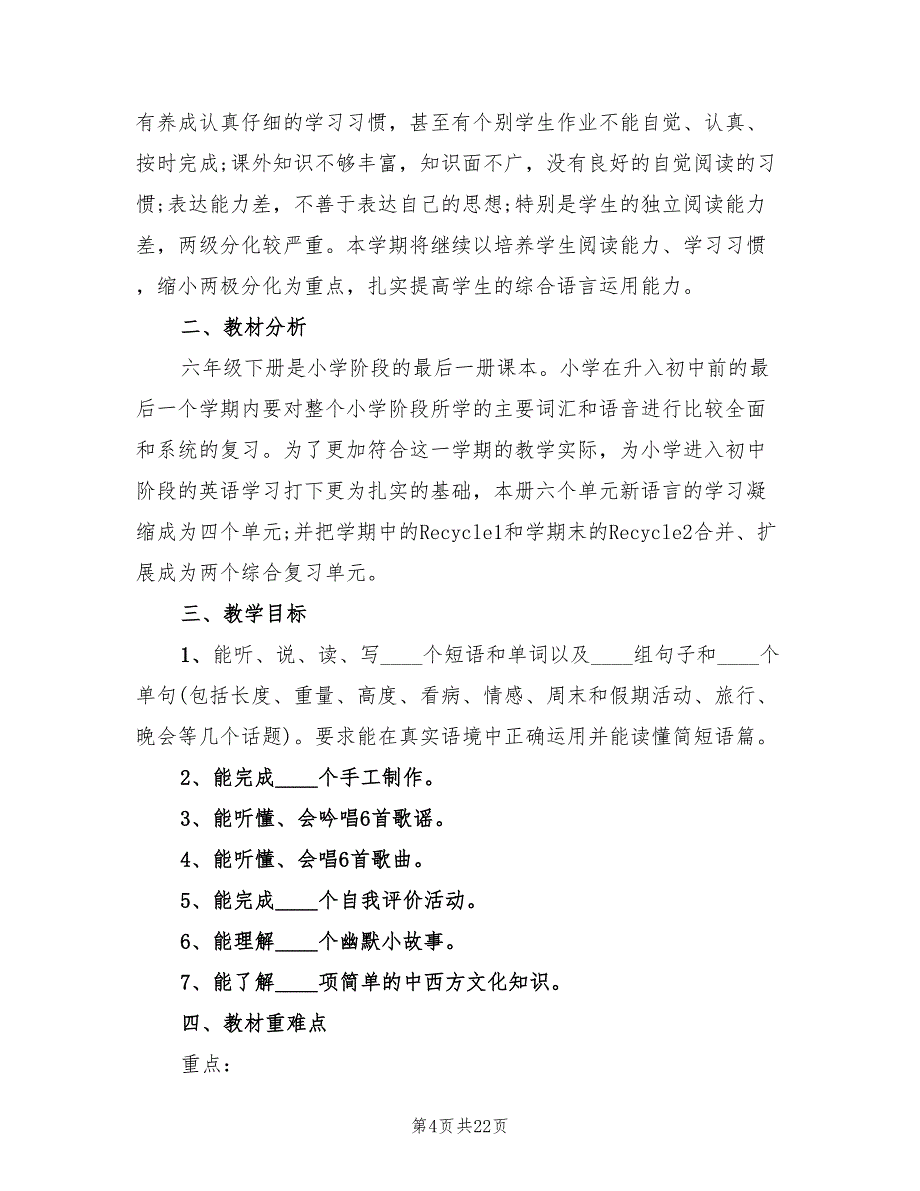 有养成认真仔细的学习习惯，甚至有个别学生作业不能自觉、认真、
按时完成;课外知识不够丰富，知识面不广，没有良好的自觉阅读的习
惯;表达能力差，不善于表达自己的思想;特别是学生的独立阅读能力
差，两级分化较严重。本学期将继续以培养学生阅读能力、学习习惯
，缩小两极分化为重点，扎实提高学生的综合语言运用能力。
二、教材分析
六年级下册是小学阶段的最后一册课本。小学在升入初中前的最
后一个学期内要对整个小学阶段所学的主要词汇和语音进行比较全面
和系统的复习。为了更加符合这一学期的教学实际，为小学进入初中
阶段的英语学习打下更为扎实的基础，本册六个单元新语言的学习凝
缩成为四个单元;并把学期中的Recycle1和学期末的Recycle2合并、扩
展成为两个综合复习单元。
三、教学目标
1、能听、说、读、写____个短语和单词以及____组句子和____个
单句(包括长度、重量、高度、看病、情感、周末和假期活动、旅行、
晚会等几个话题)。要求能在真实语境中正确运用并能读懂简短语篇。
2、能完成____个手工制作。
3、能听懂、会吟唱6首歌谣。
4、能听懂、会唱6首歌曲。
5、能完成____个自我评价活动。
6、能理解____个幽默小故事。
7、能了解____项简单的中西方文化知识。
四、教材重难点
重点：
第4页共22页